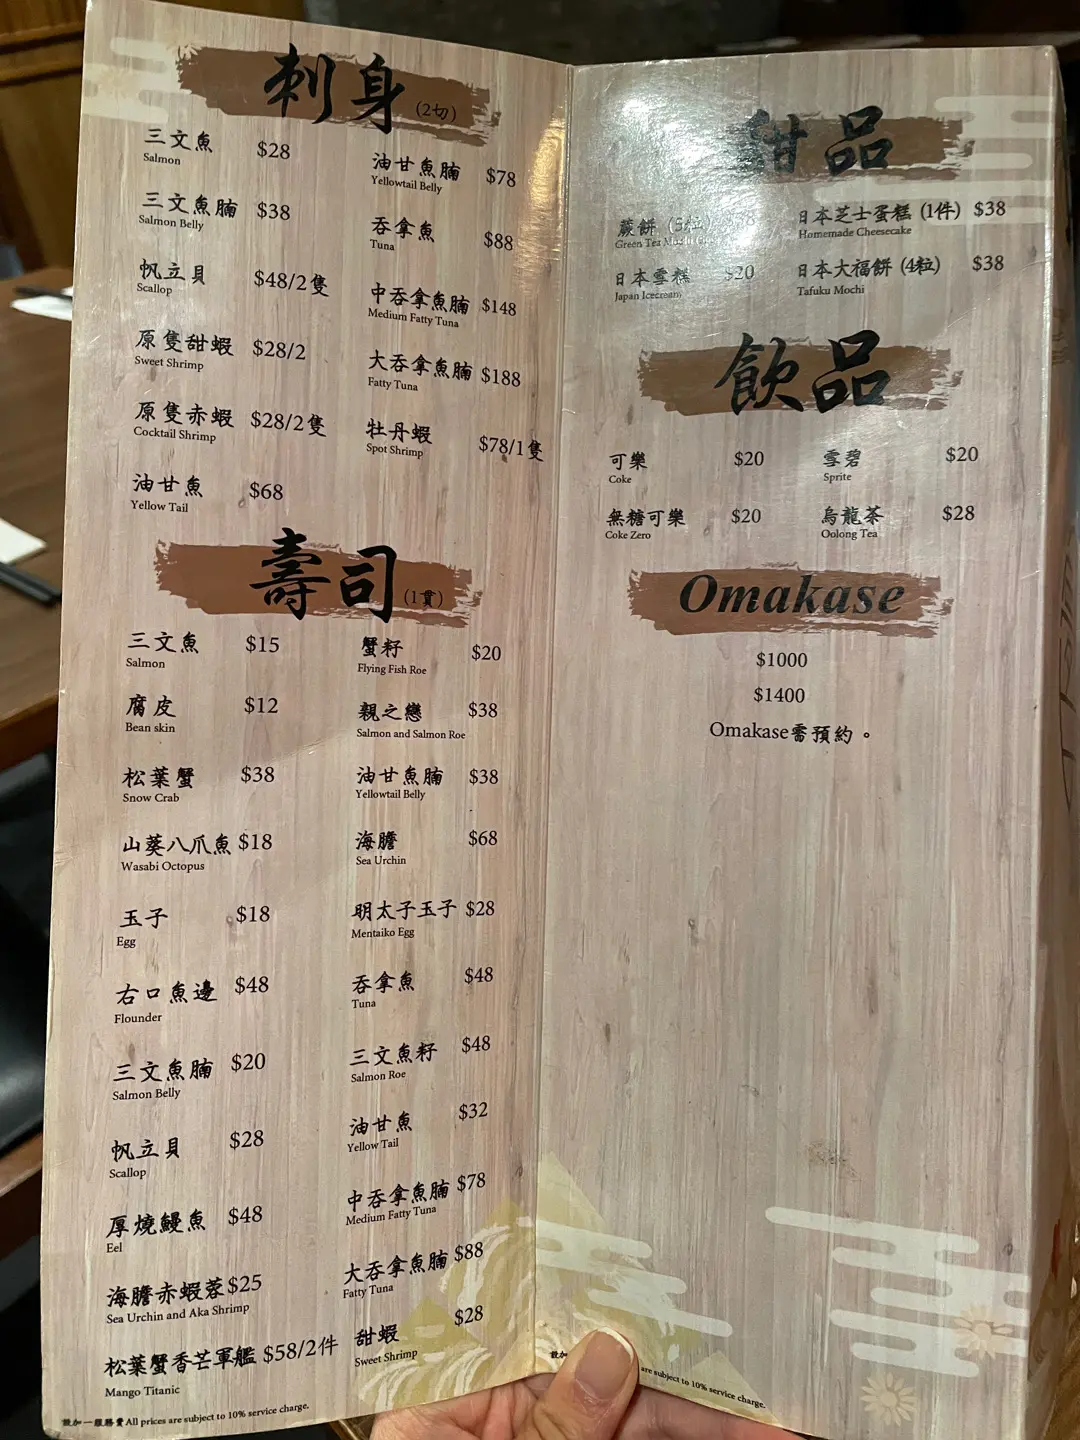 刺身 (2切)
三文魚 $28
Salmon
三文魚腩 $38
Salmon Belly
帆立貝 $48/2隻
Scallop
原隻甜蝦 $28/2
Sweet Shrimp
原隻赤蝦 $28/2隻
Cocktail Shrimp
油甘魚 $68
Yellow Tail
油甘魚腩 $78
Yellowtail Belly
吞拿魚 $88
Tuna
中吞拿魚腩 $148
Medium Fatty Tuna
大吞拿魚腩 $188
Fatty Tuna
牡丹蝦 $78/1隻
Spot Shrimp
壽司 (1貫)
三文魚 $15
Salmon
腐皮 $12
Bean skin
松葉蟹 $38
Snow Crab
山葵八爪魚 $18
Wasabi Octopus
玉子 $18
Egg
右口魚邊 $48
Flounder
三文魚腩 $20
Salmon Belly
帆立貝 $28
Scallop
厚燒鰻魚 $48
Eel
海膽赤蝦蓉 $25
Sea Urchin and Aka Shrimp
松葉蟹香芒軍艦 $58/2件
Mango Titanic
蟹籽 $20
Flying Fish Roe
親之戀 $38
Salmon and Salmon Roe
油甘魚腩 $38
Yellowtail Belly
海膽 $68
Sea Urchin
明太子玉子 $28
Mentaiko Egg
吞拿魚 $48
Tuna
三文魚籽 $48
Salmon Roe
油甘魚 $32
Yellow Tail
中吞拿魚腩 $78
Medium Fatty Tuna
大吞拿魚腩 $88
Fatty Tuna
甜蝦 $28
Sweet Shrimp
設加一服務費 All prices are subject to 10% service charge.
甜品
蕨餅
Green Tea
日本雪糕 $20
Japan Icecream
日本芝士蛋糕 (1件) $38
Homemade Cheesecake
日本大福餅 (4粒) $38
Tafuku Mochi
飲品
可樂 $20
Coke
無糖可樂 $20
Coke Zero
雪碧 $20
Sprite
烏龍茶 $28
Oolong Tea
Omakase
$1000
$1400
Omakase需預約。
設加 are subject to 10% service charge.